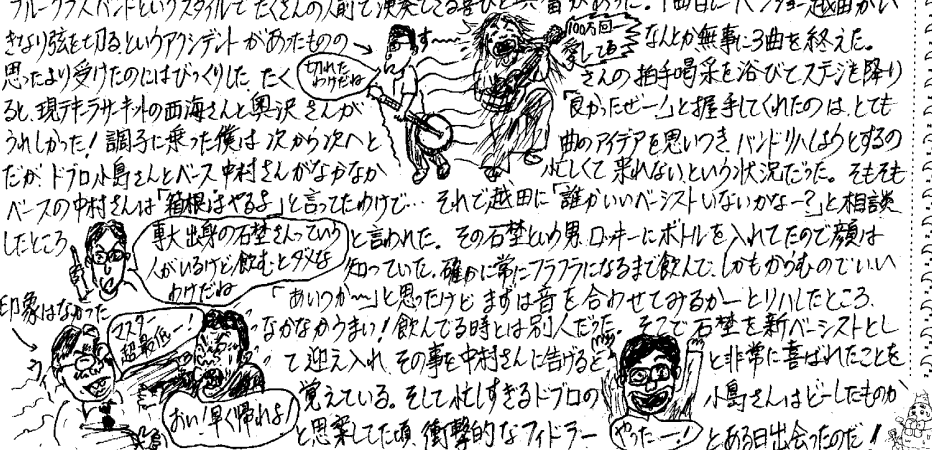 ブルーグラスバンドというスタイルでたくさんの人前で演奏してる喜びと
1曲目にバンジョー越田がい
きなり弦を切るというアクシデントがあったものの
なんとか無事に3曲を終えた。
思ったより受けたのにはびっくりした。たく
さんの拍手喝采を浴びてステージを降り
ると、現テキラサーキットの西海さんと奥沢さんが
「良かったぜー!」と握手してくれたのは、とても
うれしかった!調子に乗った僕は次から次へと
曲のアイデアを思いつき、バンドリハしようとするの
だが、ドブロ小島さんとベース中村さんがなかなか
忙しくて来れないという状況だった。そもそも
ベースの中村さんは「箱根はやるよ」と言ってたわけで…それで越田に「誰かいいベーシストいないかなー?」と相談
したところ
と言われた。その石埜という男、ロッキーにボトルを入れてたので顔は
知っていた。確かに常にフラフラになるまで飲んで、しかもからむのでいい
印象はなかった
「あいつか〜」と思ったけど、まずは音を合わせてみるかーとリハしたところ、
なかなかうまい!飲んでる時とは別人だった。そこで石埜を新ベーシストとし
て迎え入れ、その事を中村さんに告げると
と非常に喜ばれたことを
覚えている。そして忙しすぎるドブロの
小島さんはどーしたものか
と思案してた頃、衝撃的なフィドラー
とある日出会ったのだ!
切れた
わけだね
す〜
100万回
愛してるう
専大出身の石埜さんっていう
人がいるけど、飲むとダメな
わけだね
マスター
超最低ー!
おい!早く帰れよ!
やったー!